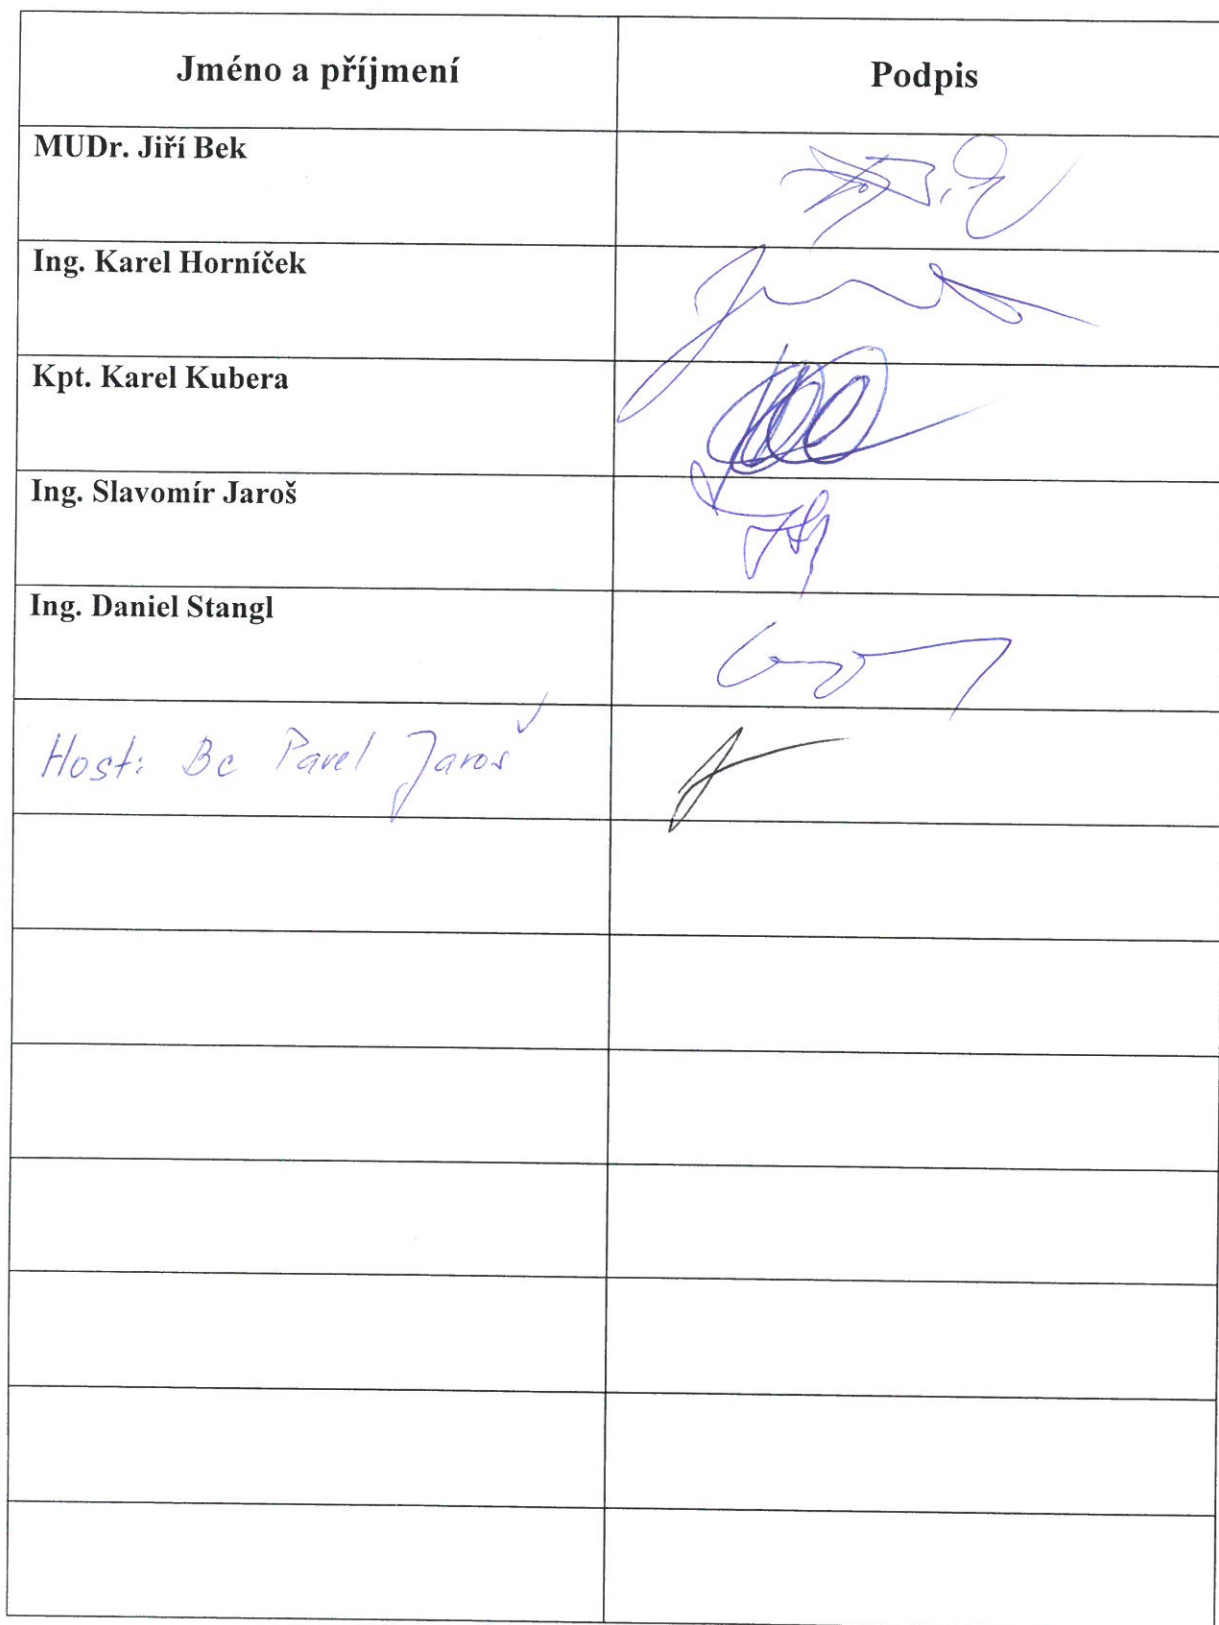 Jméno a příjmení
Podpis
MUDr. Jiří Bek
Ing. Karel Horníček
Kpt. Karel Kubera
Ing. Slavomír Jaroš
Ing. Daniel Stangl
Host: Bc Pavel Jaroš